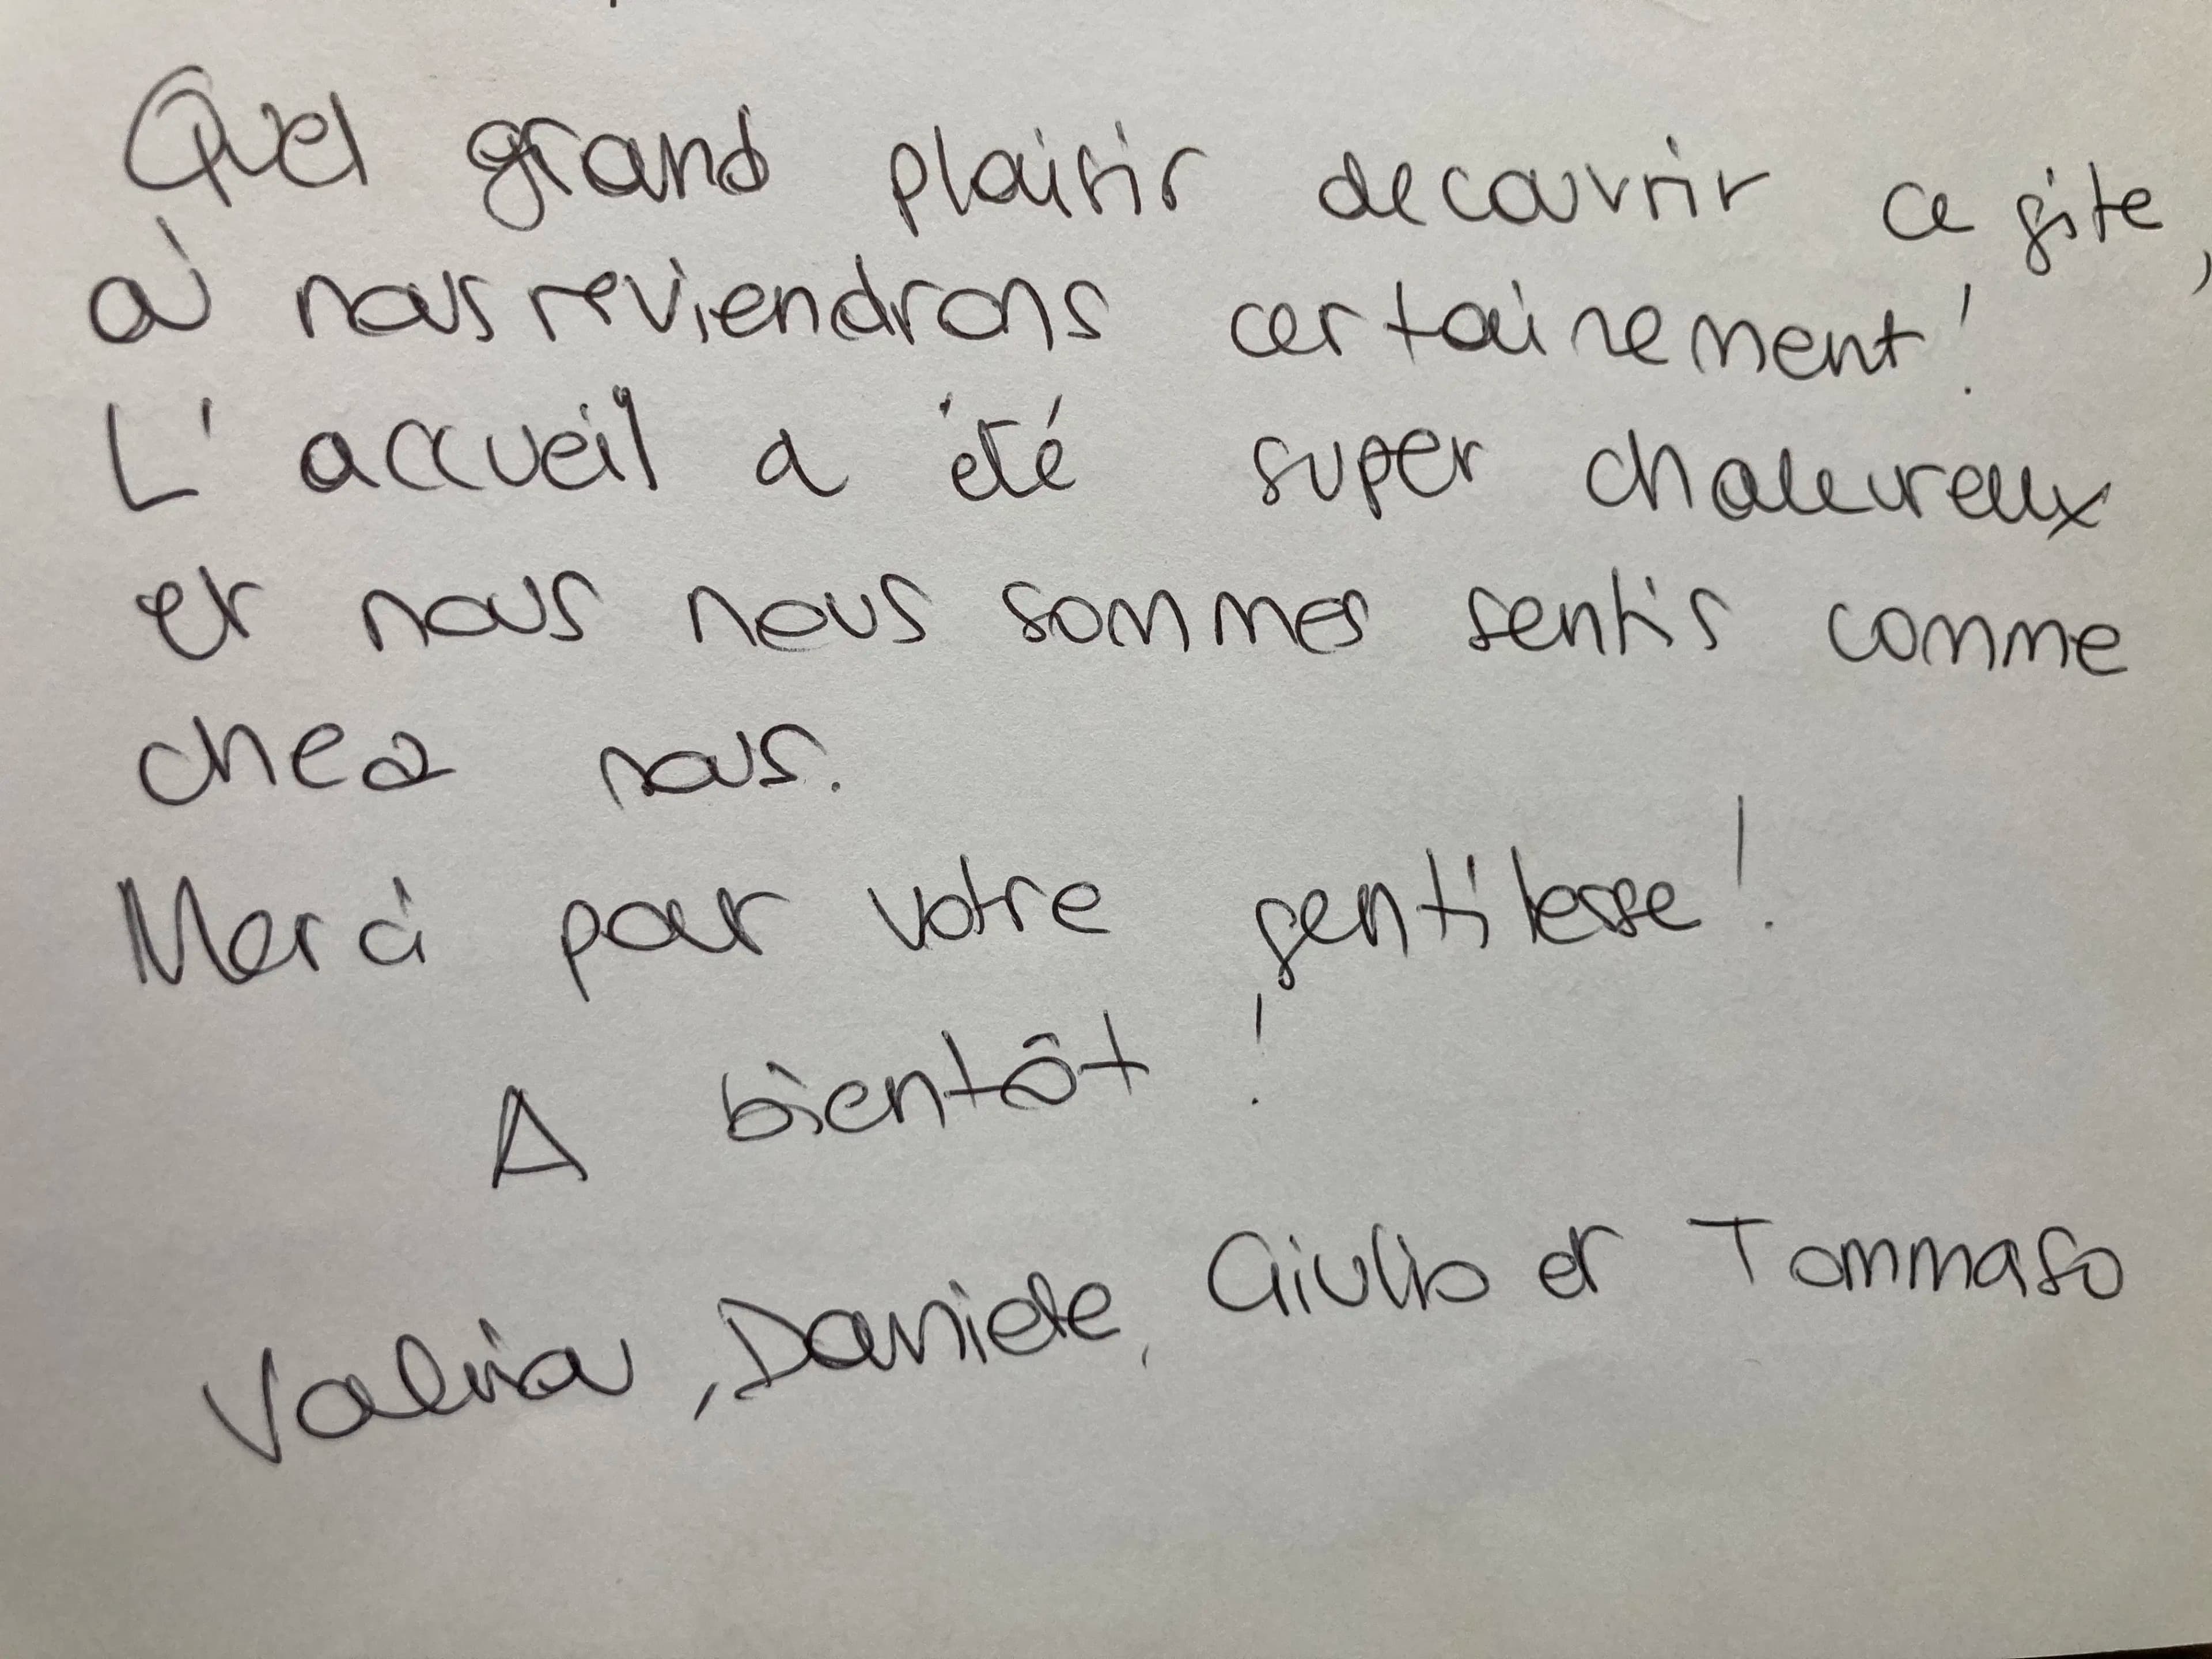 Quel grand plaisir decouvrir ce gite,
où nous reviendrons certainement!
L'accueil a été super chaleureux
et nous nous sommes sentis comme
chez nous.
Merci pour votre gentilesse!
A bientôt!
Valeria, Daniele, Giulio et Tommaso